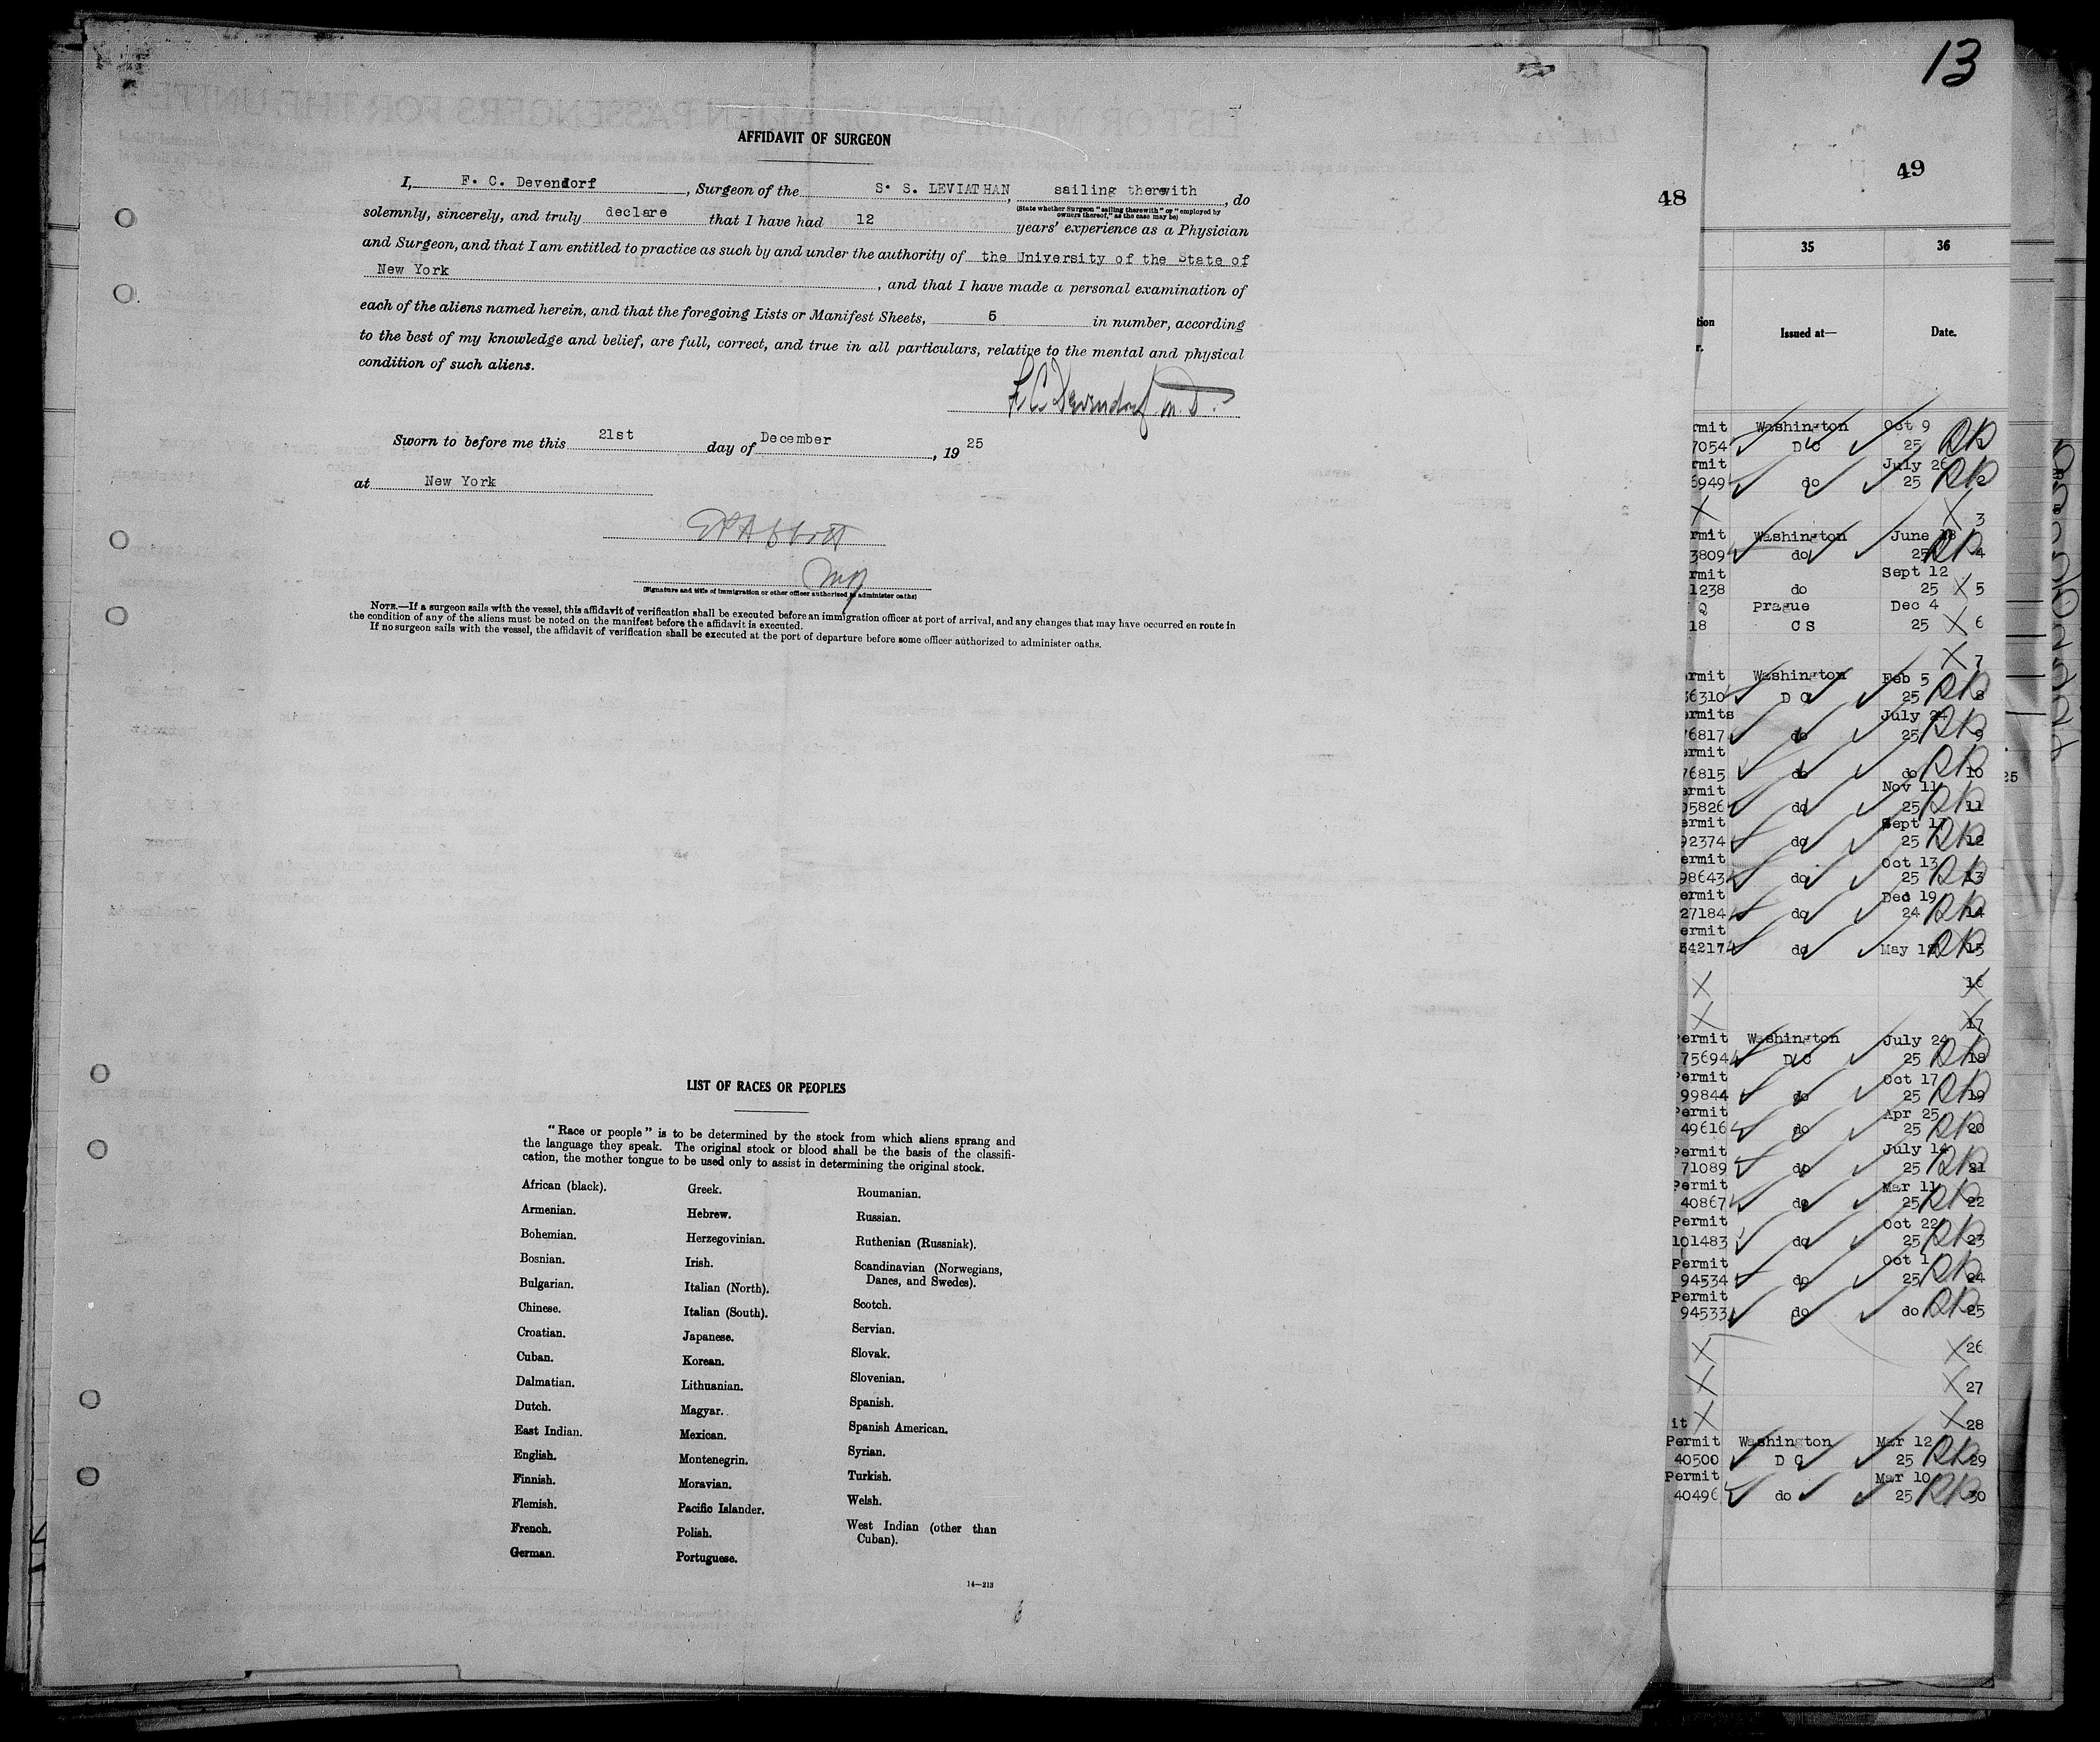 13
49
48
AFFIDAVIT OF SURGEON
I, F. C. Devendorf, Surgeon of the S. S. LEVIATHAN, sailing therewith, do
(State whether Surgeon "sailing therewith" or "employed by
owners thereof," as the case may be)
solemnly, sincerely, and truly declare that I have had 12 years' experience as a Physician
and Surgeon, and that I am entitled to practice as such by and under the authority of the University of the State of
New York, and that I have made a personal examination of
each of the aliens named herein, and that the foregoing Lists or Manifest Sheets, 5 in number, according
to the best of my knowledge and belief, are full, correct, and true in all particulars, relative to the mental and physical
condition of such aliens.
F C Devendorf M. D.
Sworn to before me this 21st day of December, 1925
at New York
(Signature and title of immigration or other officer authorized to administer oaths)
NOTE.—If a surgeon sails with the vessel, this affidavit of verification shall be executed before an immigration officer at port of arrival, and any changes that may have occurred en route in
the condition of any of the aliens must be noted on the manifest before the affidavit is executed.
If no surgeon sails with the vessel, the affidavit of verification shall be executed at the port of departure before some officer authorized to administer oaths.
LIST OF RACES OR PEOPLES
"Race or people" is to be determined by the stock from which aliens sprang and
the language they speak. The original stock or blood shall be the basis of the classifi-
cation, the mother tongue to be used only to assist in determining the original stock.
African (black).
Armenian.
Bohemian.
Bosnian.
Bulgarian.
Chinese.
Croatian.
Cuban.
Dalmatian.
Dutch.
East Indian.
English.
Finnish.
Flemish.
French.
German.
Greek.
Hebrew.
Herzegovinian.
Irish.
Italian (North).
Italian (South).
Japanese.
Korean.
Lithuanian.
Magyar.
Mexican.
Montenegrin.
Moravian.
Pacific Islander.
Polish.
Portuguese.
Roumanian.
Russian.
Ruthenian (Russniak).
Scandinavian (Norwegians,
Danes, and Swedes).
Scotch.
Servian.
Slovak.
Slovenian.
Spanish.
Spanish American.
Syrian.
Turkish.
Welsh.
West Indian (other than
Cuban).
14—213
35 36
tion
r. Issued at— Date.
rmit Washington Oct 9
7054 D C 25
rmit July 26
6949 do 25 2
X X 3
rmit Washington June 18
3809 do 25 4
rmit Sept 12
1238 do 25 X 5
Q Prague Dec 4
18 C S 25 X 6
X 7
rmit Washington Feb 5
36310 D C 25 8
ermits July 24
76817 do 25 9
ermit
76815 do do 10
ermit Nov 11
05826 do 25 11
ermit Sept 17
92374 do 25 12
ermit Oct 13
98643 do 25 13
ermit Dec 19
27184 do 24 14
ermit
54217 do May 15
X 16
X 17
Permit Washington July 24
75694 D C 25 18
Permit Oct 17
99844 do 25 19
Permit Apr 25
49616 do 25 20
Permit July 14
71089 do 25 21
Permit Mar 11
40867 do 25 22
Permit Oct 22
101483 do 25 23
Permit Oct 1
94534 do 25 24
Permit
94533 do do 25
X X 26
X X 27
it X X 28
Permit Washington Mar 12
40500 D C 25 29
Permit Mar 10
40496 do 25 30
25